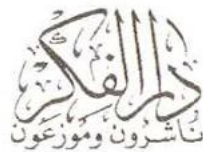 دار الفكر
ناشرون وموزعون